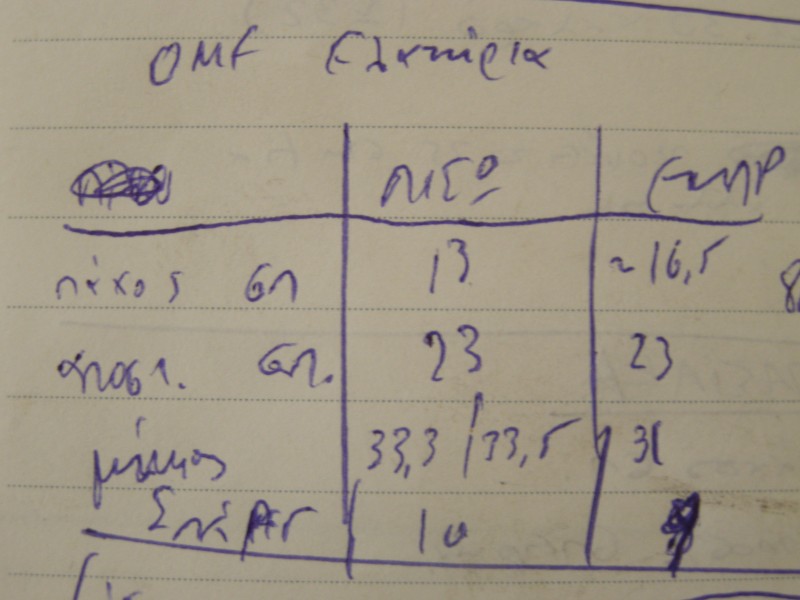 OMF Ελατήρια
ΠΙΣΩ ΕΜΠΡ
πάχος σπ 13 ~16,5
αποστ. σπ. 23 23
μήκος 33,3 / 33,5 31
Σπείρες 10